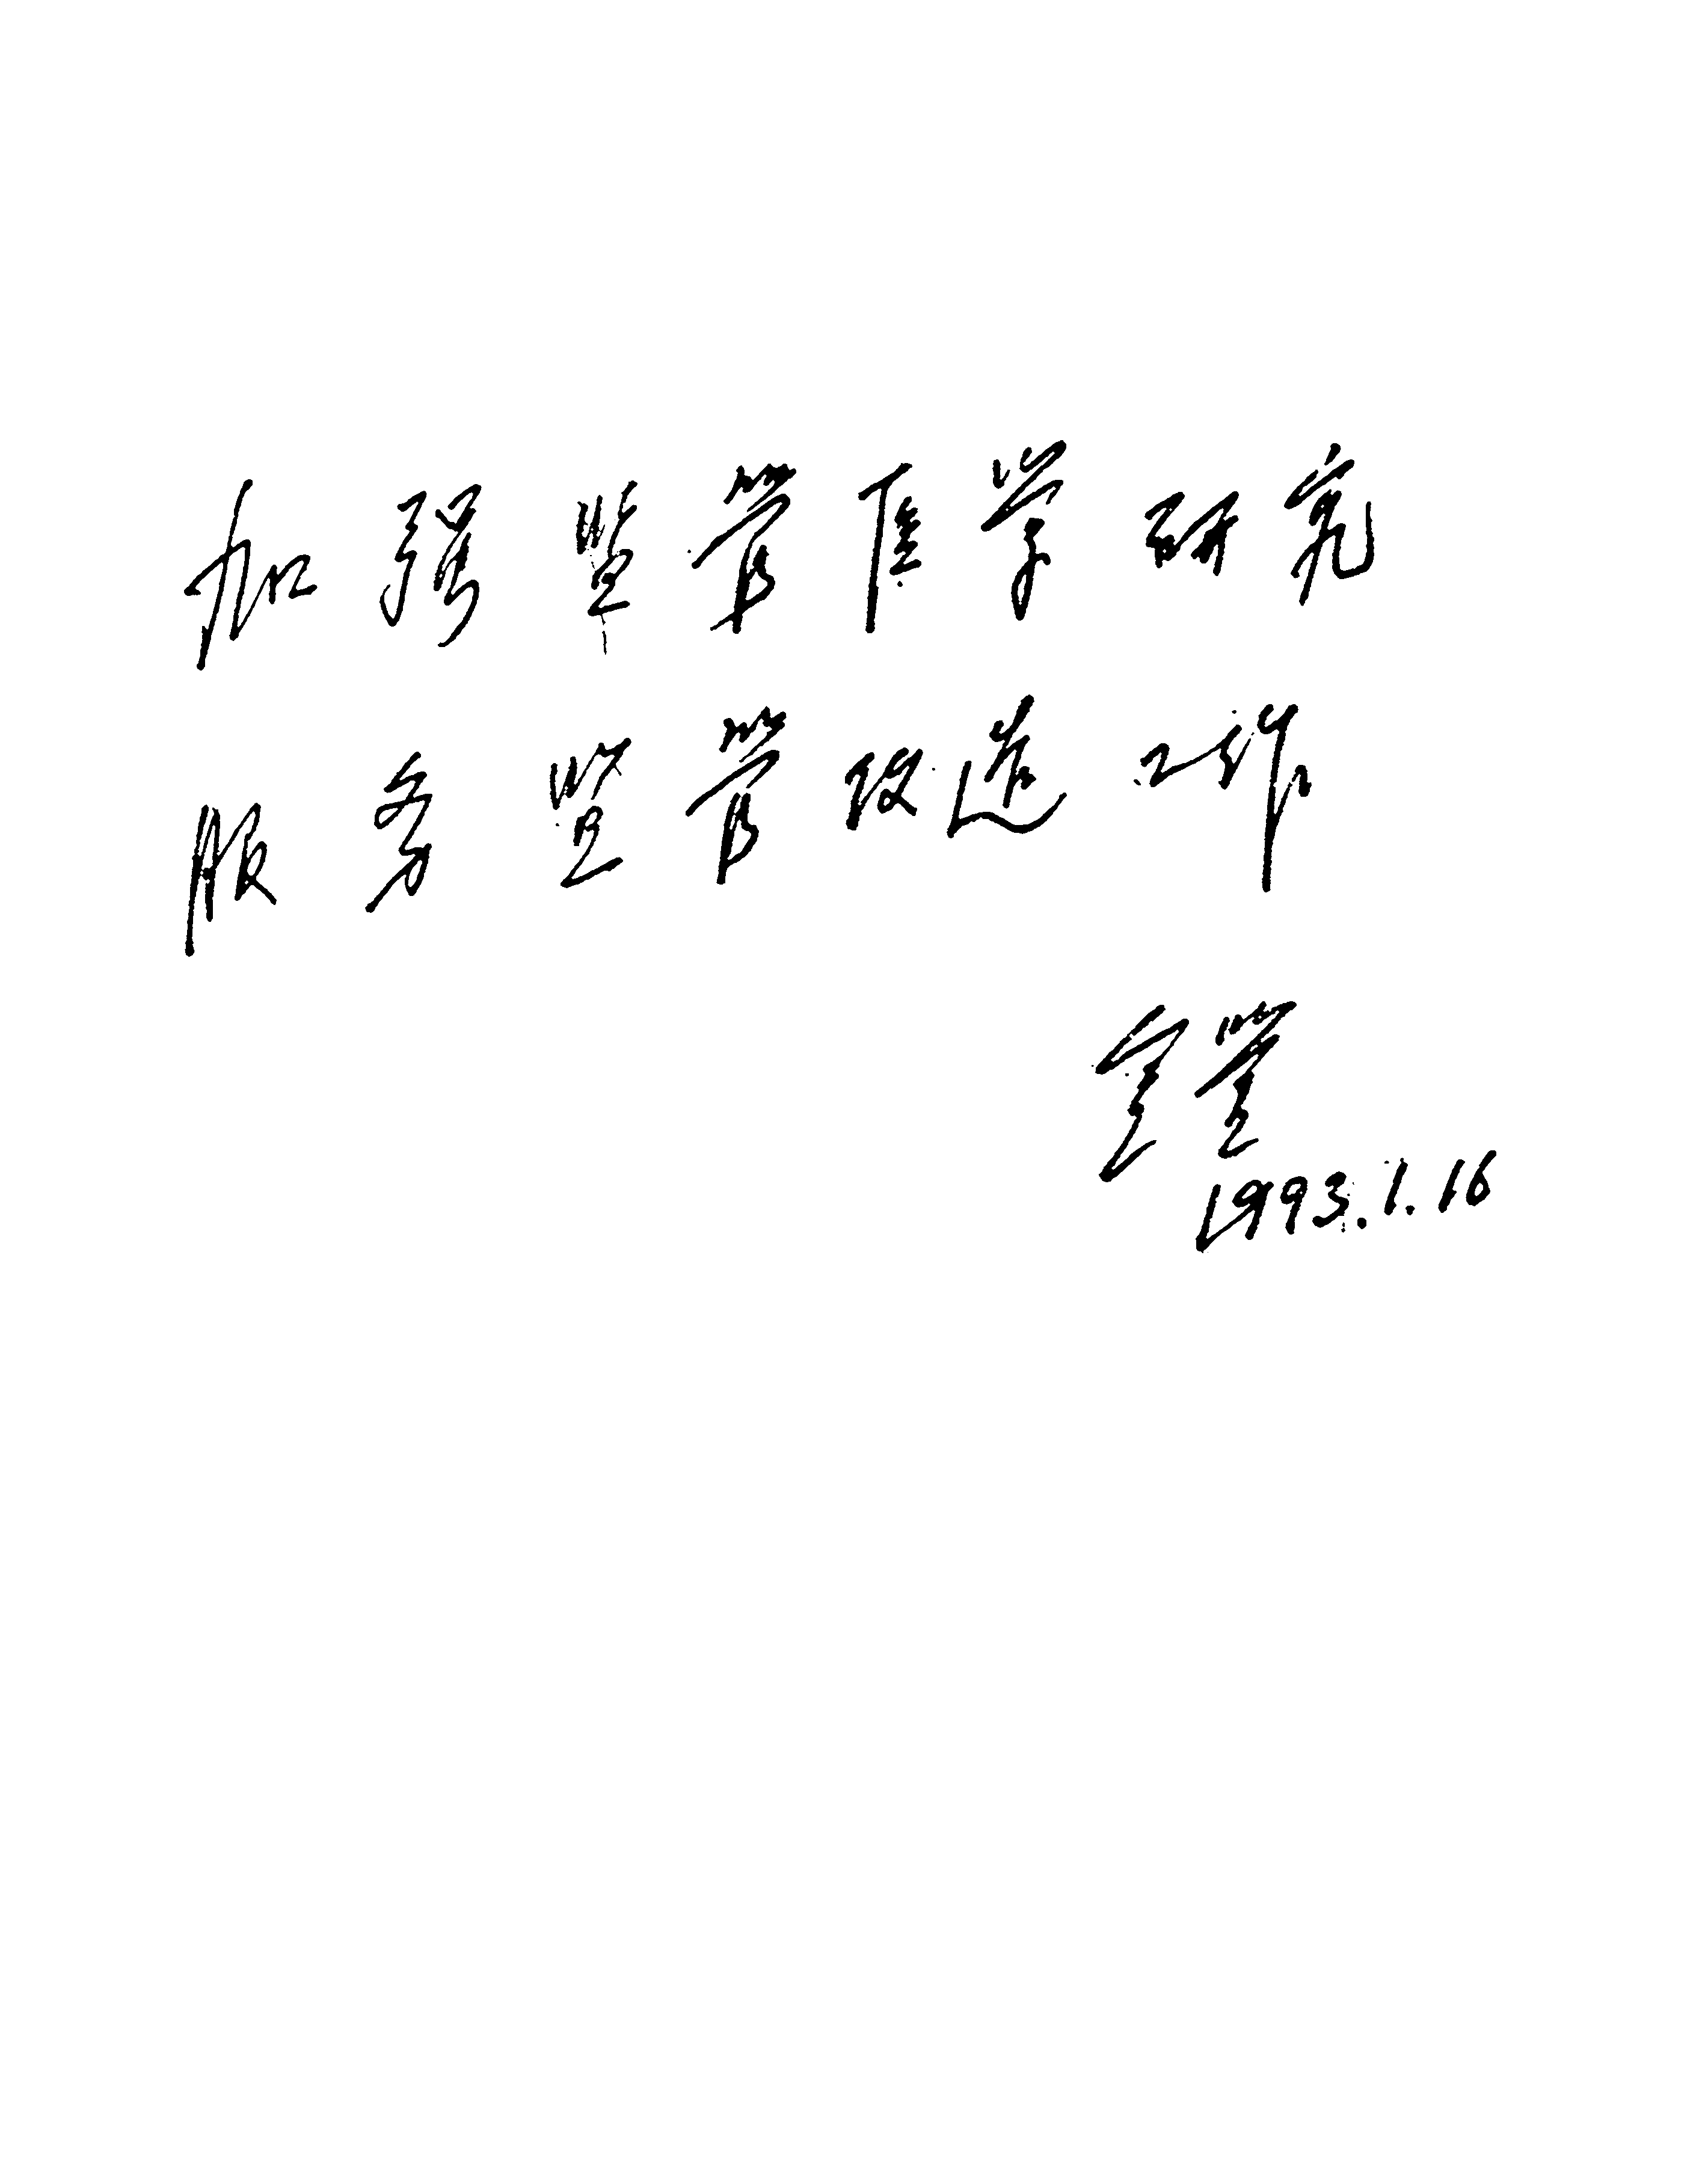 加强监管医学研究
服务监管改造工作
1993.1.16